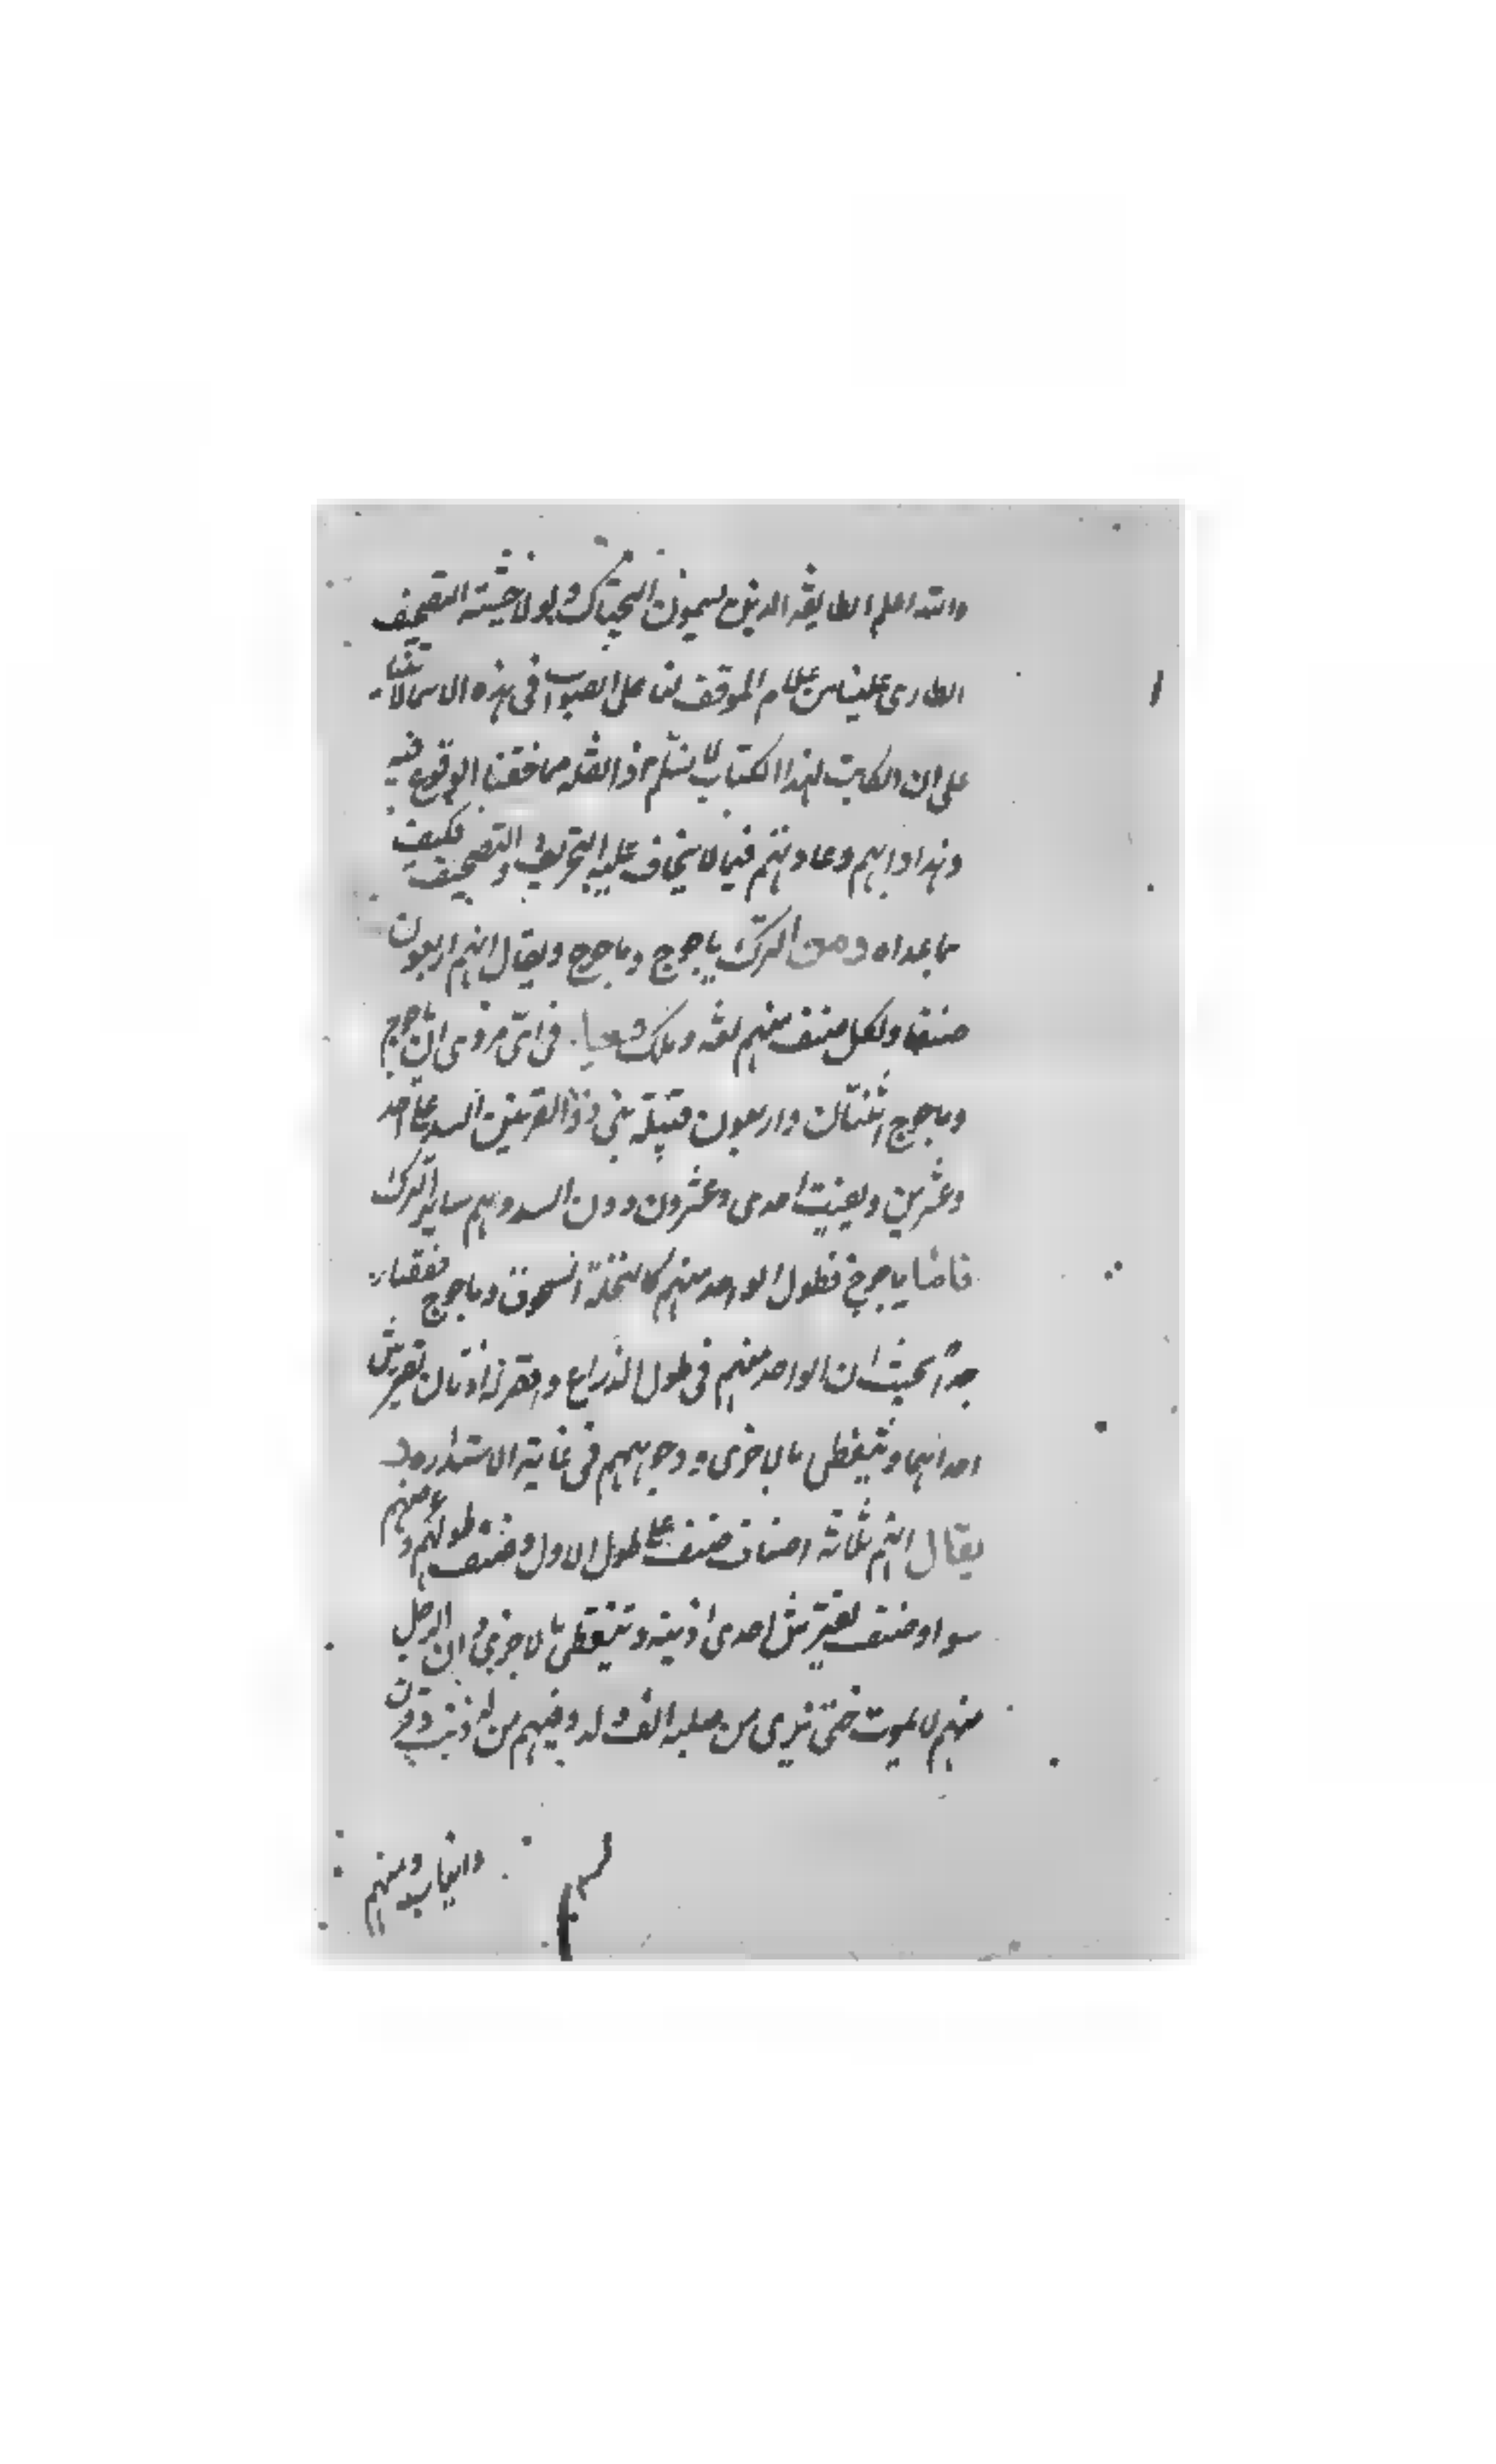 والله اعلم الطايفة الذين يسمون الجتاك ولولا خشية التصحيف
الطارى علينا من علام الموقف لنا على الصواب فى هذه الاسما لاتقنا
على ان الكاتب لهذا الكتاب لا يسلم مما خفنا الوقوع فيه
وهذا دابهم وعادتهم فيما لا يخاف عليه التحريف والتصحيف فكيف
بما عداه ومن الترك ياجوج وماجوج ويقال انهم اربعون
صنفا ولكل صنف منهم لغة وملك ان ياجوج
وماجوج اثنتان واربعون قبيلة بنى ذو القرنين السد على احد
وعشرين وبقيت احدى وعشرون دون السد وهم ساير الترك
فاما ياجوج فطول الواحد منهم كالنخلة السحوق وماجوج فقصار
جدا بحيث ان الواحد منهم فى طول الذراع له اذنان يفترش
احداهما ويتغطى بالاخرى ووجوههم فى غاية الاستداره و
يقال انهم ثلاثة اصناف صنف على طول الاول وصنف طولهم وعرضهم
سوا وصنف يفترش احدى اذنيه ويتغطى بالاخرى وان الرجل
منهم لا يموت حتى يرى من صلبه الف ولد وفيهم من له ذنب وقرن
وانياب ومنهم